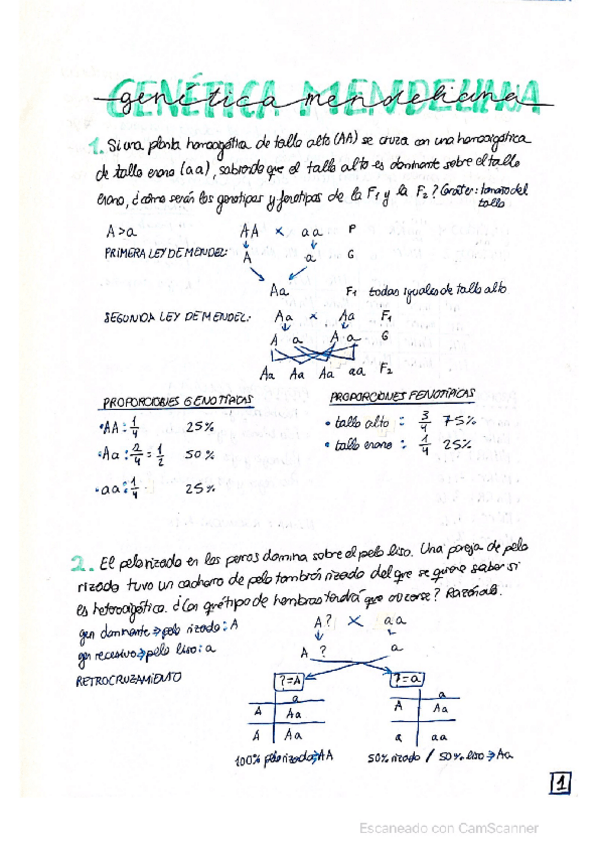 GENÉTICA MENDELIANA
genética mendeliana
1. Si una planta homocigótica de tallo alto (AA) se cruza con una homocigótica
de tallo enano (aa), sabiendo que el tallo alto es dominante sobre el tallo
enano, ¿cómo serán los genotipos y fenotipos de la F1 y la F2? Caráter: tamaño del
tallo
A>a AA × aa P
PRIMERA LEY DE MENDEL: A a G
Aa F1 todas iguales de tallo alto
SEGUNDA LEY DE MENDEL: Aa × Aa F1
A a A a G
Aa Aa Aa aa F2
PROPORCIONES GENOTÍPICAS PROPORCIONES FENOTÍPICAS
• AA: 1/4 25% • tallo alto: 3/4 75%
• Aa: 2/4 = 1/2 50% • tallo enano: 1/4 25%
• aa: 1/4 25%
2. El pelo rizado en los perros domina sobre el pelo liso. Una pareja de pelo
rizado tuvo un cachorro de pelo también rizado del que se quiere saber si
es heterocigótico. ¿Con qué tipo de hembras tendrá que cruzarse? Razónalo.
gen dominante → pelo rizado: A A? × aa
gen recesivo → pelo liso: a A ? a
RETROCRUZAMIENTO ?=A ?=a
a a
A Aa A Aa
A Aa a aa
100% pelo rizado → AA 50% rizado / 50% liso → Aa
1
Escaneado con CamScanner